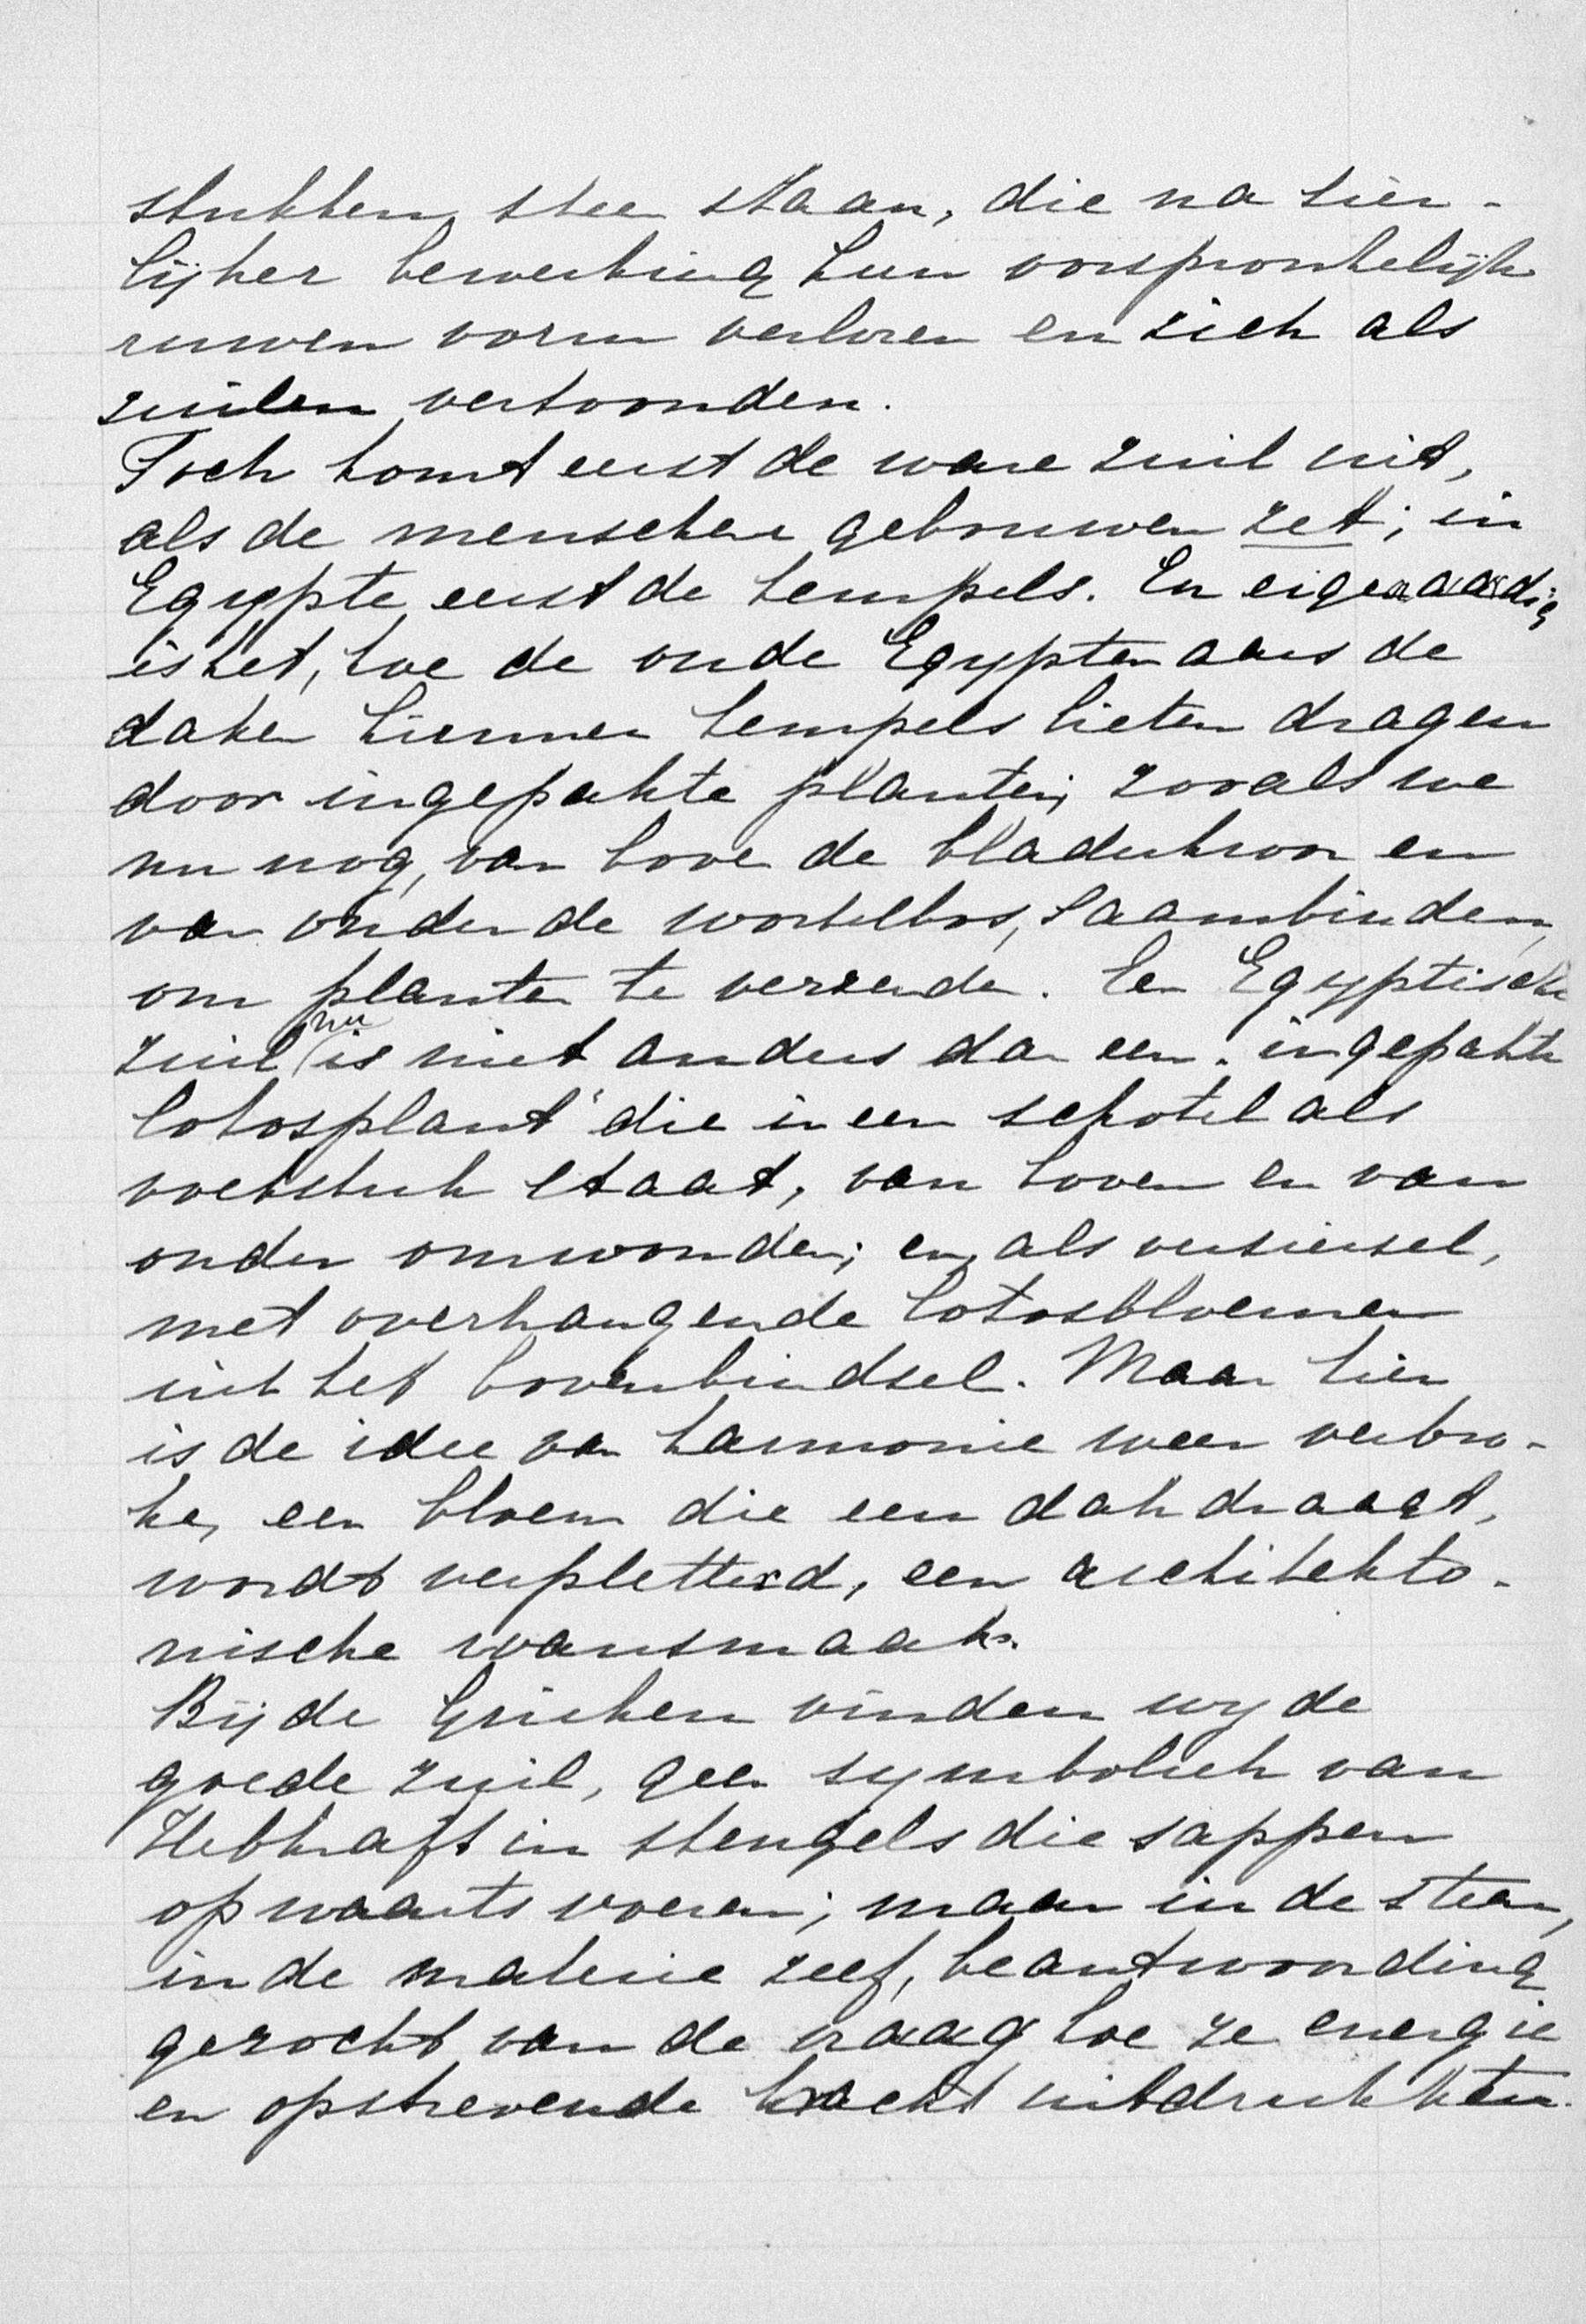 stukken steen staan, die na sier-
lijker bewerking hun oorspronkelijk
ruwen vorm verloren en zich als
zuilen vertoonden.
Toch komt eerst de ware zuil uit,
als de menschen gebouwen zet; in
Egypte eerst de tempels. En eigenaardig
is het, hoe de oude Egyptenaars de
daken hunner tempels lieten dragen
door ingepakte planten; zooals we
nu nog, van boven de bladerkroon en
van onder de wortelbos, saambinden,
om planten te verzenden. Een Egyptische
zuil nu is niet anders dan een "ingepakte
lotosplant" die in een schotel als
voetstuk staat, van boven en van
onder omwonden; en, als versiersel,
met overhangende lotosbloemen
uit het bovenbindsel. Maar hier
is de idee van harmonie weer verbro-
ken, een bloem die een dak draagt,
wordt verpletterd, een architekto-
nische wansmaak.
Bij de Grieken vinden wy de
goede zuil, geen symboliek van
Hebkraft in stengels die sappen
opwaarts voeren; maar in de steen,
in de materie zelf, beantwoording
gezocht van de vraag hoe ze energie
en opstrevende kracht uitdrukken.